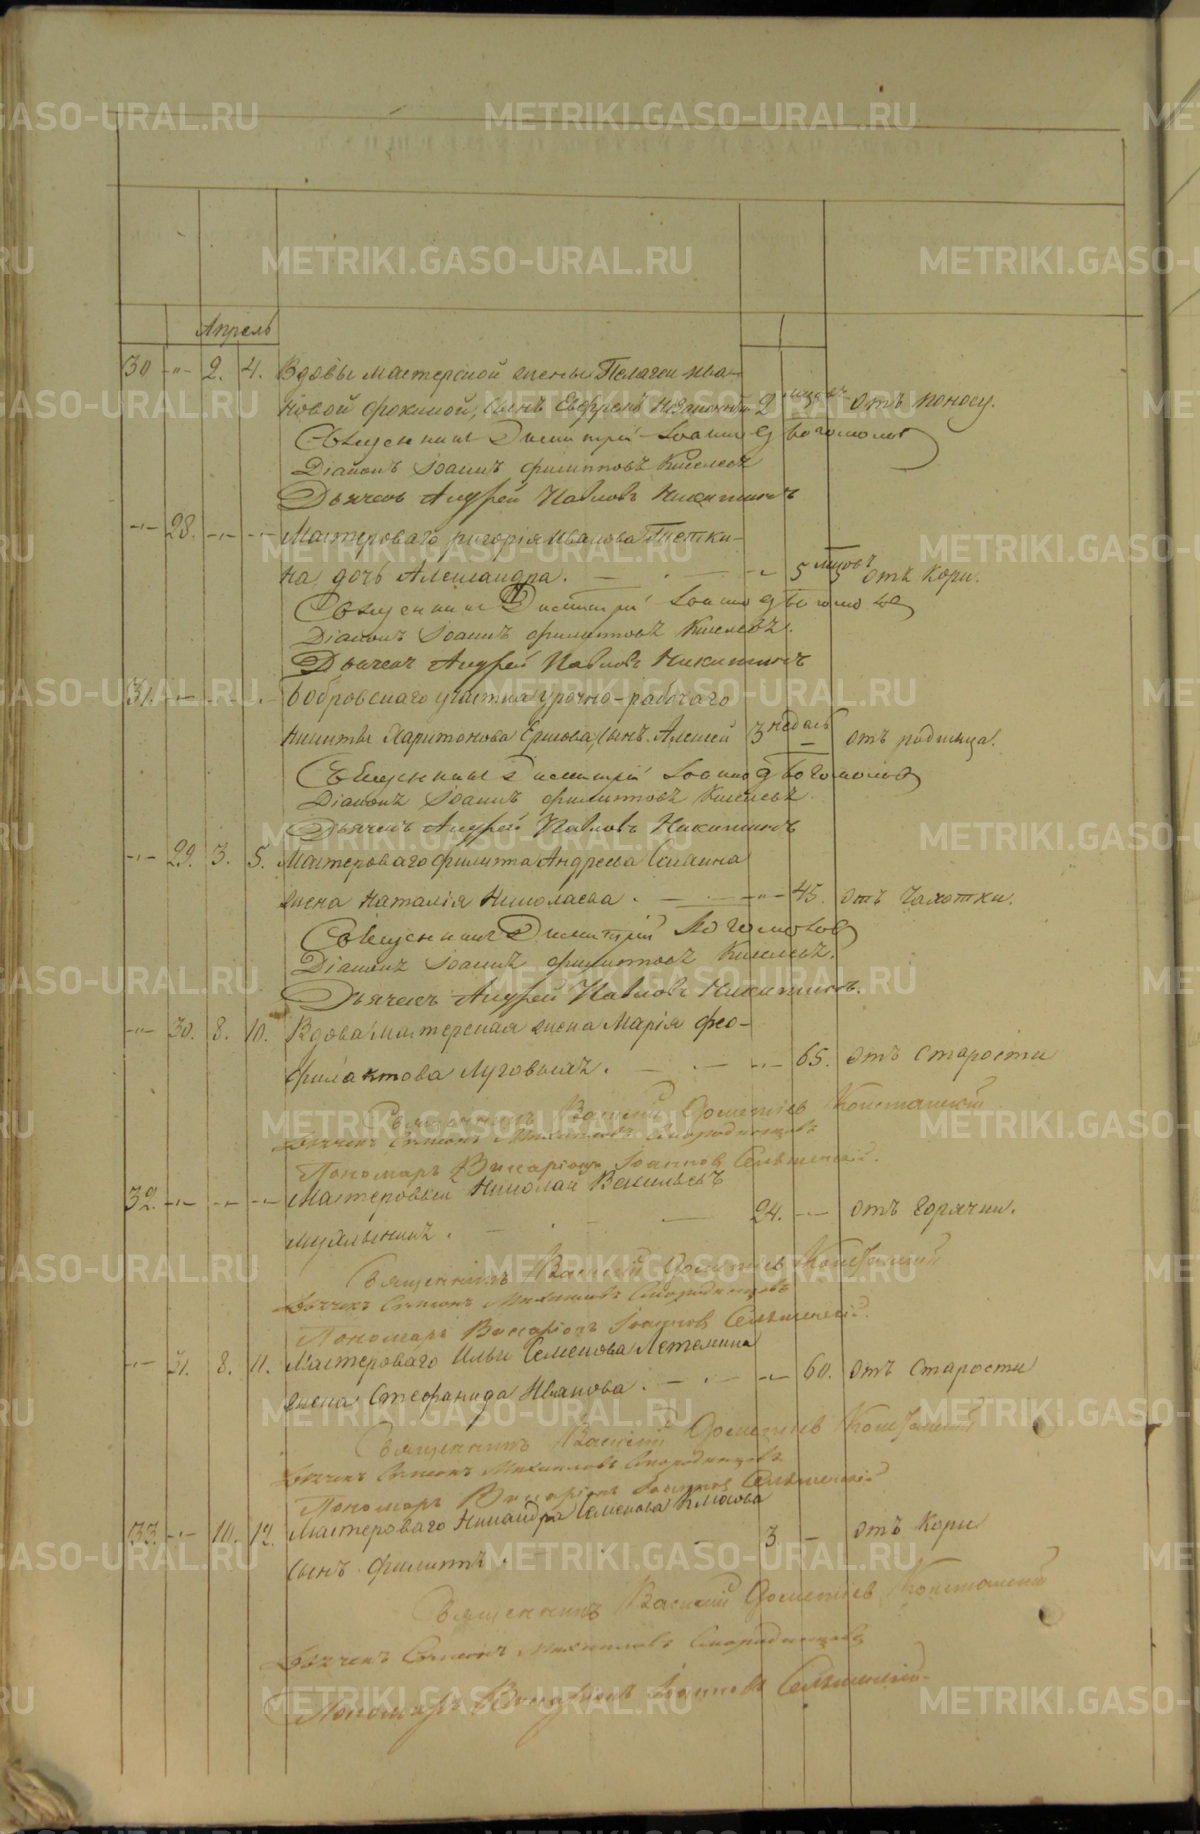 METRIKI.GASO-URAL.RU
Апрель
30 -"- 2. 4. Вдовы мастерской жены Пелагеи Ива-
новой Фокиной, сынъ 2 отъ поносу.
Священникъ Димитрій Іоанновъ Богомоловъ
Діаконъ Іоаннъ Филипповъ Киселевъ
Дьячекъ Андрей Павловъ Никитинъ
-"- 28. -"- -"- Мастероваго Григорія Иванова
на дочь Александра. -"- 5 отъ кори.
Священникъ Димитрій Іоанновъ Богомоловъ
Діаконъ Іоаннъ Филипповъ Киселевъ.
Дьячекъ Андрей Павловъ Никитинъ
31. -"- -"- -"- Бобровскаго участка урочно-рабочаго
Никиты Харитонова Ершова, сынъ Алексей 3 недель отъ родимца.
Священникъ Димитрій Іоанновъ Богомоловъ
Діаконъ Іоаннъ Филипповъ Киселевъ.
Дьячекъ Андрей Павловъ Никитинъ
-"- 29. 3. 5. Мастероваго Филиппа Андреева
жена Наталія Николаева. -"- 45. отъ чахотки.
Священникъ Димитрій Богомоловъ
Діаконъ Іоаннъ Филипповъ Киселевъ.
Дьячекъ Андрей Павловъ Никитинъ.
-"- 30. 8. 10. Вдова мастерская жена Марія Фео-
филактова Луговыхъ. -"- 65. отъ старости
Священникъ Василій Дометіевъ
Дьячекъ Симеонъ Михайловъ Смородинцовъ
Пономарь Викаріонъ Іоанновъ
32. -"- -"- -"- Мастеровый Николай Васильевъ
24. -"- отъ горячки.
Священникъ Василій Дометіевъ
Дьячекъ Симеонъ Михайловъ Смородинцовъ
Пономарь Викаріонъ Іоанновъ
-"- 31. 8. 11. Мастероваго Ильи Семенова Летемина
жена Стефанида Иванова. -"- 60. отъ старости
Священникъ Василій Дометіевъ
Дьячекъ Симеонъ Михайловъ Смородинцовъ
Пономарь Викаріонъ Іоанновъ
33. -"- 10. 12. Мастероваго Никандра Семенова
сынъ Филиппъ. 3 - отъ кори
Священникъ Василій Дометіевъ
Дьячекъ Симеонъ Михайловъ Смородинцовъ
Пономарь Викаріонъ Іоанновъ